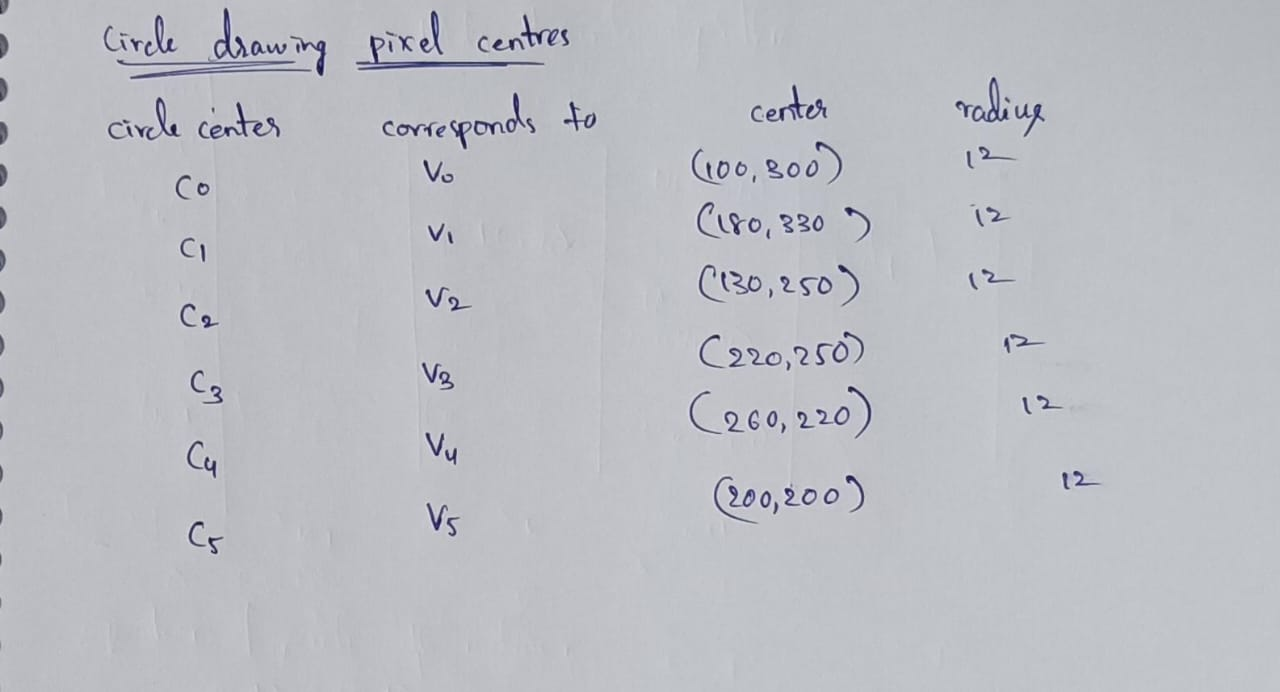 Circle drawing pixel centres
circle center corresponds to center radius
C0 V0 (100,300) 12
C1 V1 (180,330) 12
C2 V2 (130,250) 12
C3 V3 (220,250) 12
C4 V4 (260,220) 12
C5 V5 (200,200) 12